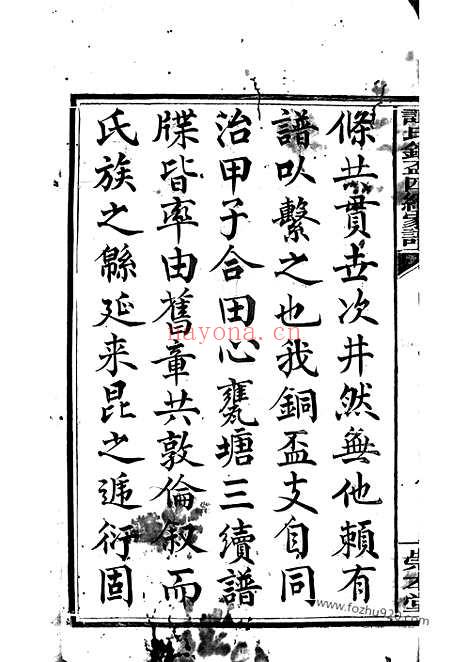 條共貫世次井然無他賴有
譜以繫之也我銅盃支自同
治甲子合田心甕塘三續譜
牒皆率由舊章共敦倫叙而
氏族之緜延来昆之遞衍固
hayona.cn
www.fozhu920.com